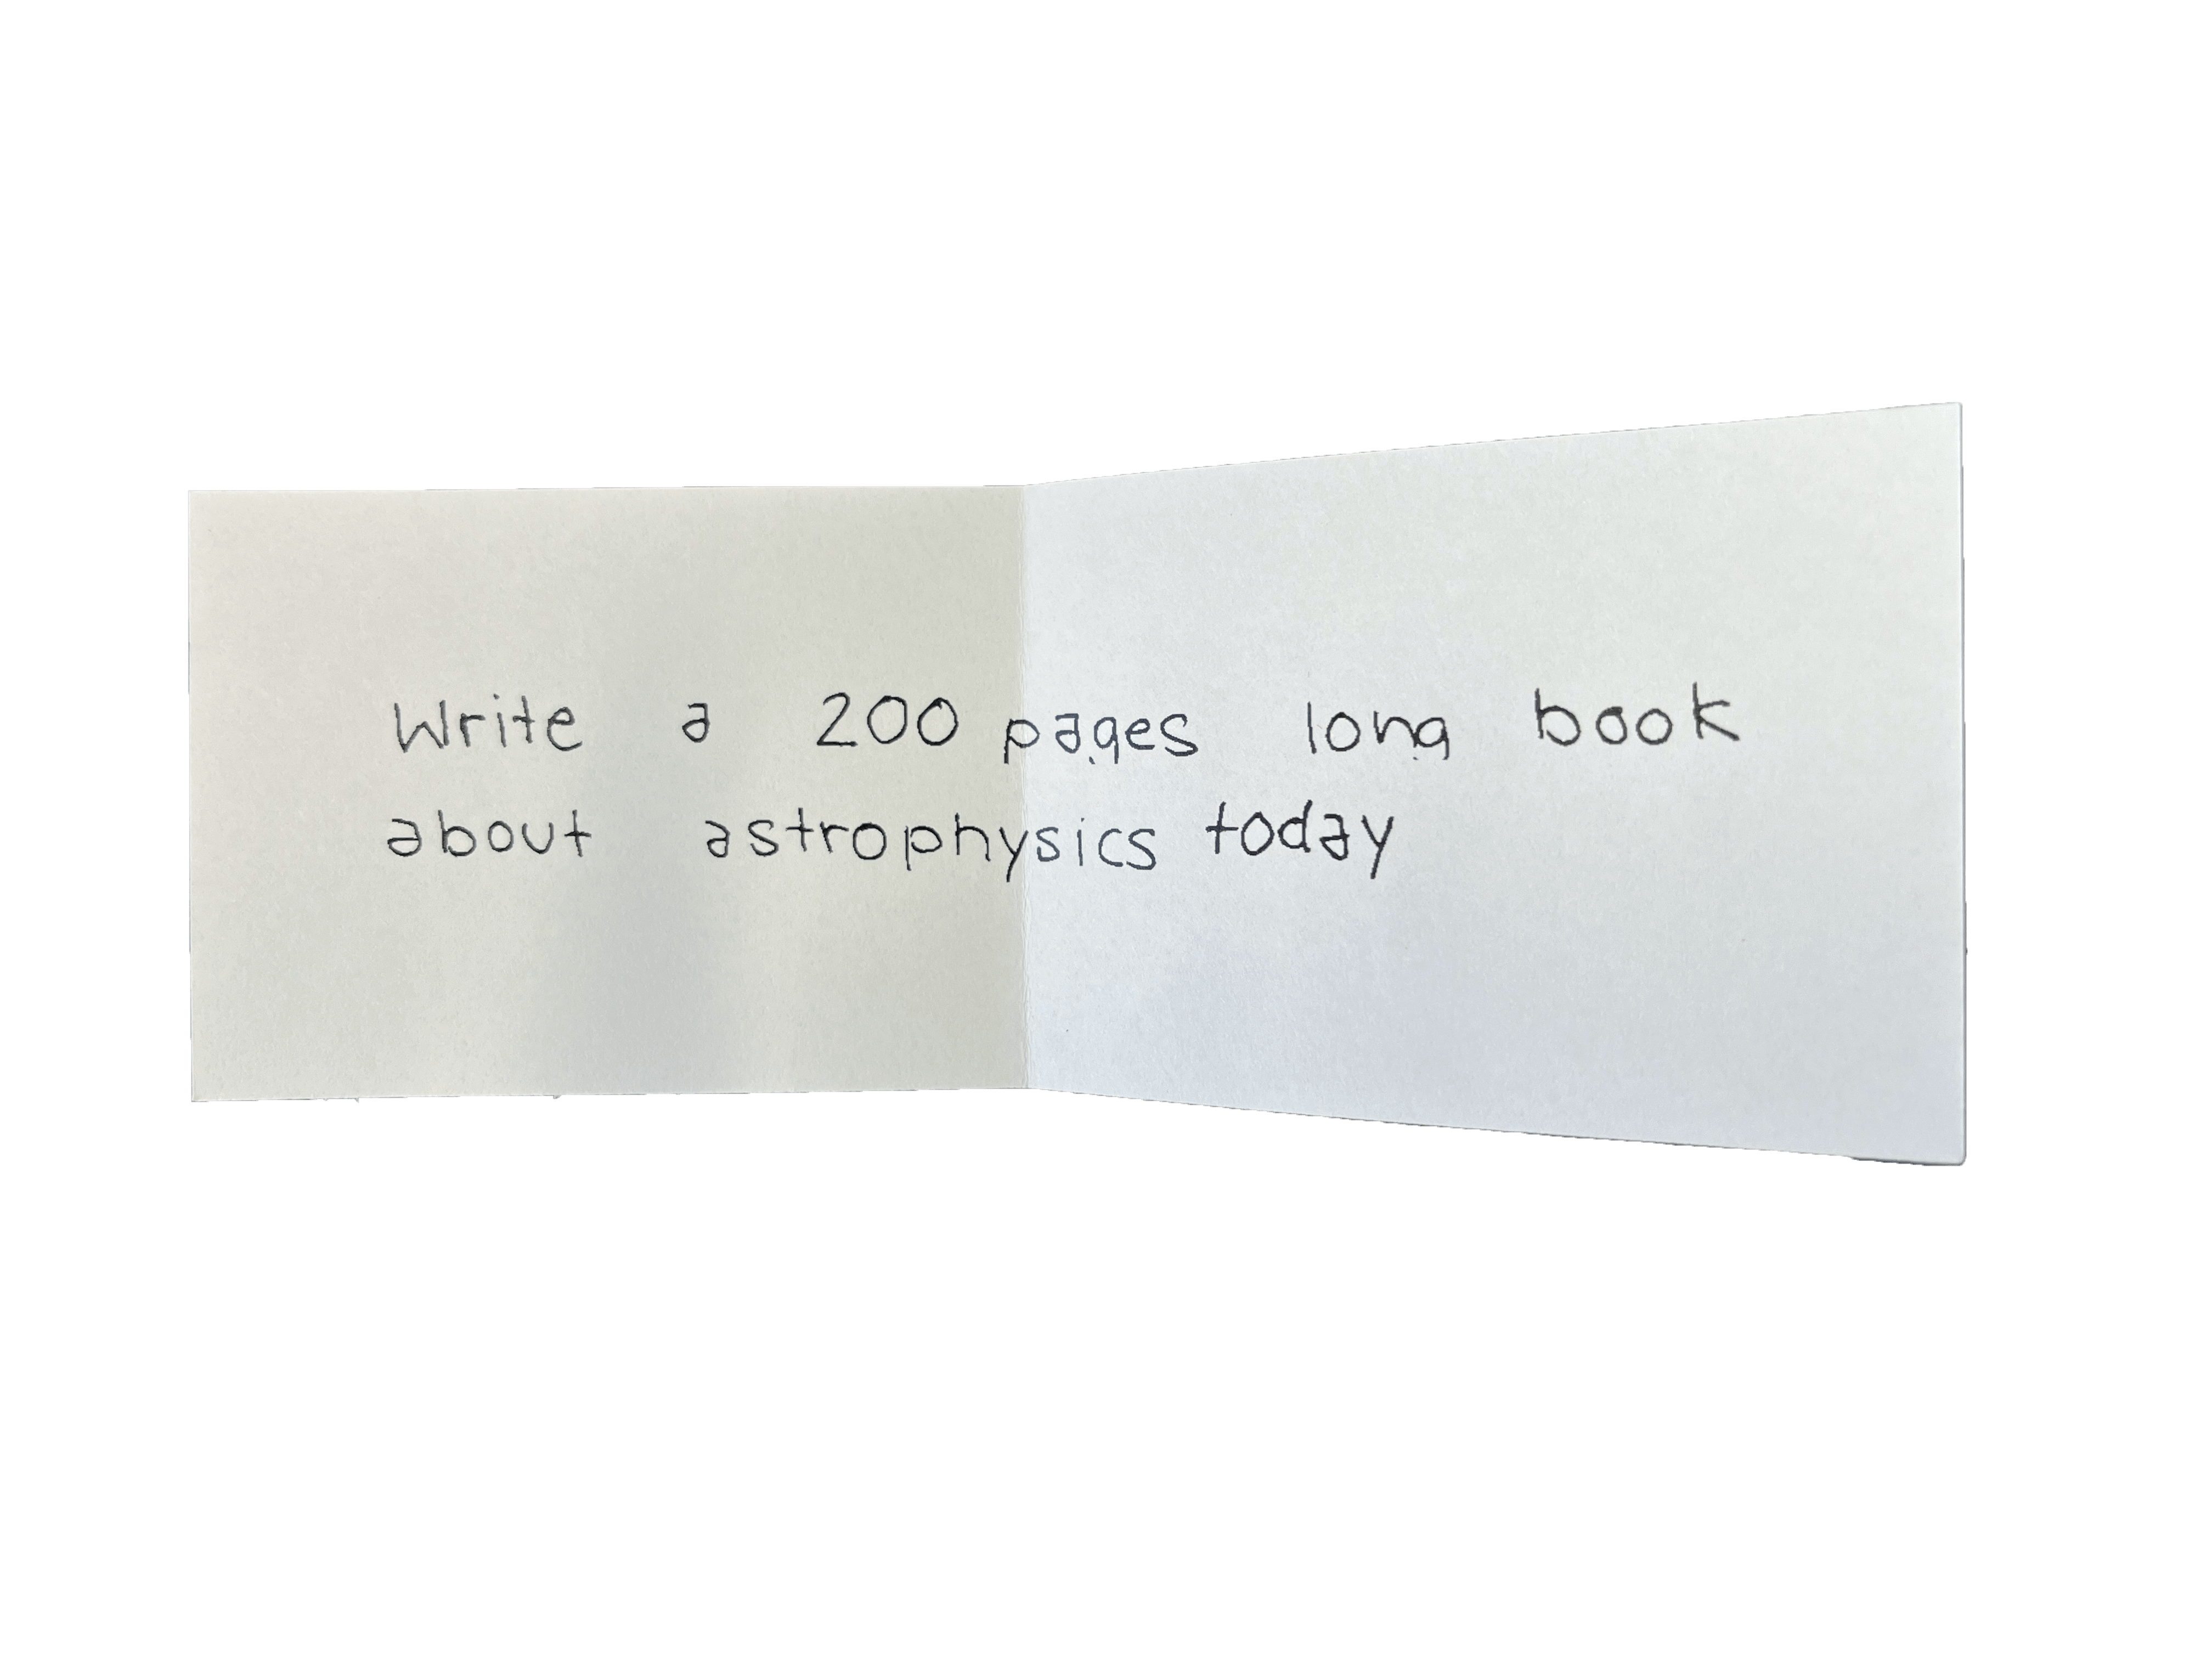 Write a 200 pages long book
about astrophysics today